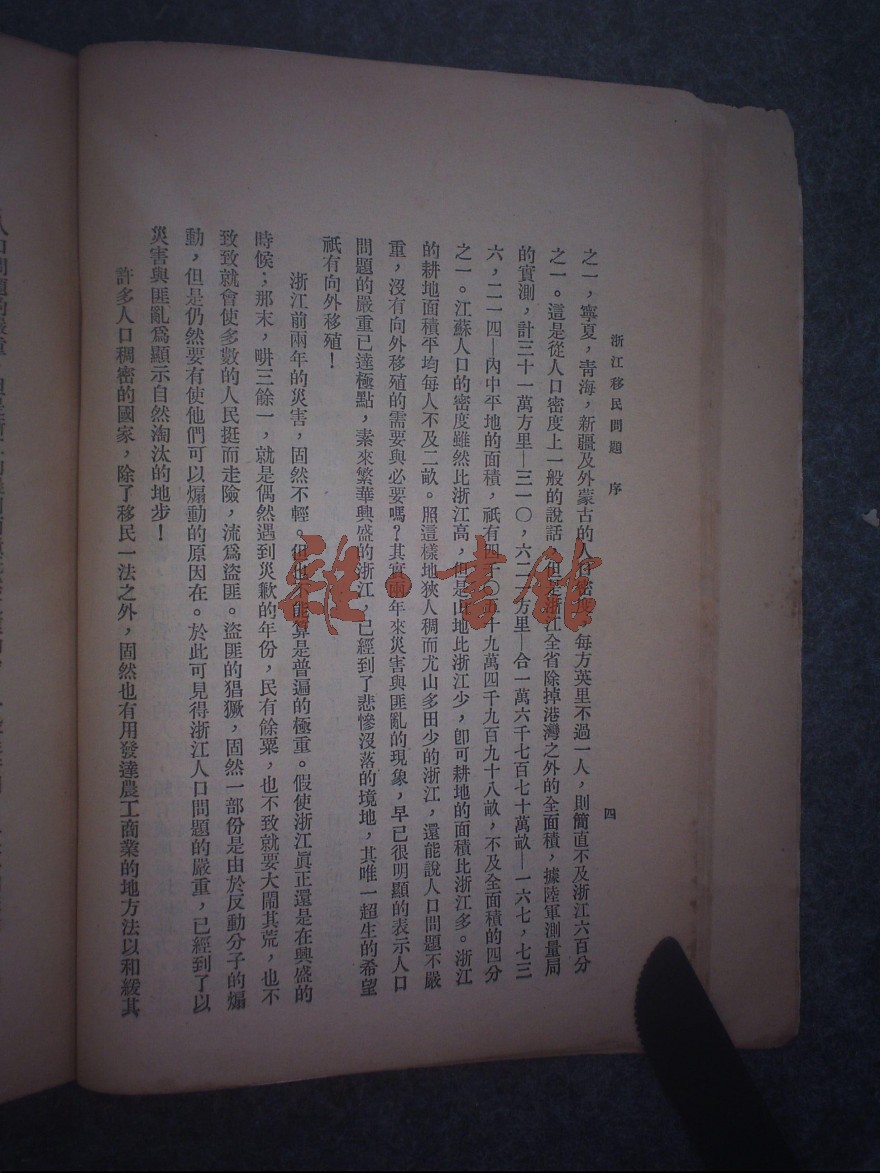 浙江移民問題 序
四
之一，寧夏，青海，新疆及外蒙古的人口密度，每方英里不過一人，則簡直不及浙江六百分
之一。這是從人口密度上一般的說話，但是浙江全省除掉港灣之外的全面積，據陸軍測量局
的實測，計三十一萬方里—三一〇，六二一方里—合一萬六千七百七十萬畝—一六七，七三
六，二一四—內中平地的面積，祇有四千〇五十九萬四千九百九十八畝，不及全面積的四分
之一。江蘇人口的密度雖然比浙江高，但是山地比浙江少，卽可耕地的面積比浙江多。浙江
的耕地面積平均每人不及二畝。照這樣地狹人稠而尤山多田少的浙江，還能說人口問題不嚴
重，沒有向外移殖的需要與必要嗎？其實兩年來災害與匪亂的現象，早已很明顯的表示人口
問題的嚴重已達極點，素來繁華興盛的浙江，已經到了悲慘沒落的境地，其唯一超生的希望
祇有向外移殖！
浙江前兩年的災害，固然不輕。但也不能算是普遍的極重。假使浙江眞正還是在興盛的
時候；那末，畊三餘一，就是偶然遇到災歉的年份，民有餘粟，也不致就要大鬧其荒，也不
致致就會使多數的人民挺而走險，流爲盜匪。盜匪的猖獗，固然一部份是由於反動分子的煽
動，但是仍然要有使他們可以煽動的原因在。於此可見得浙江人口問題的嚴重，已經到了以
災害與匪亂爲顯示自然淘汰的地步！
許多人口稠密的國家，除了移民一法之外，固然也有用發達農工商業的地方法以和緩其
雜·書館